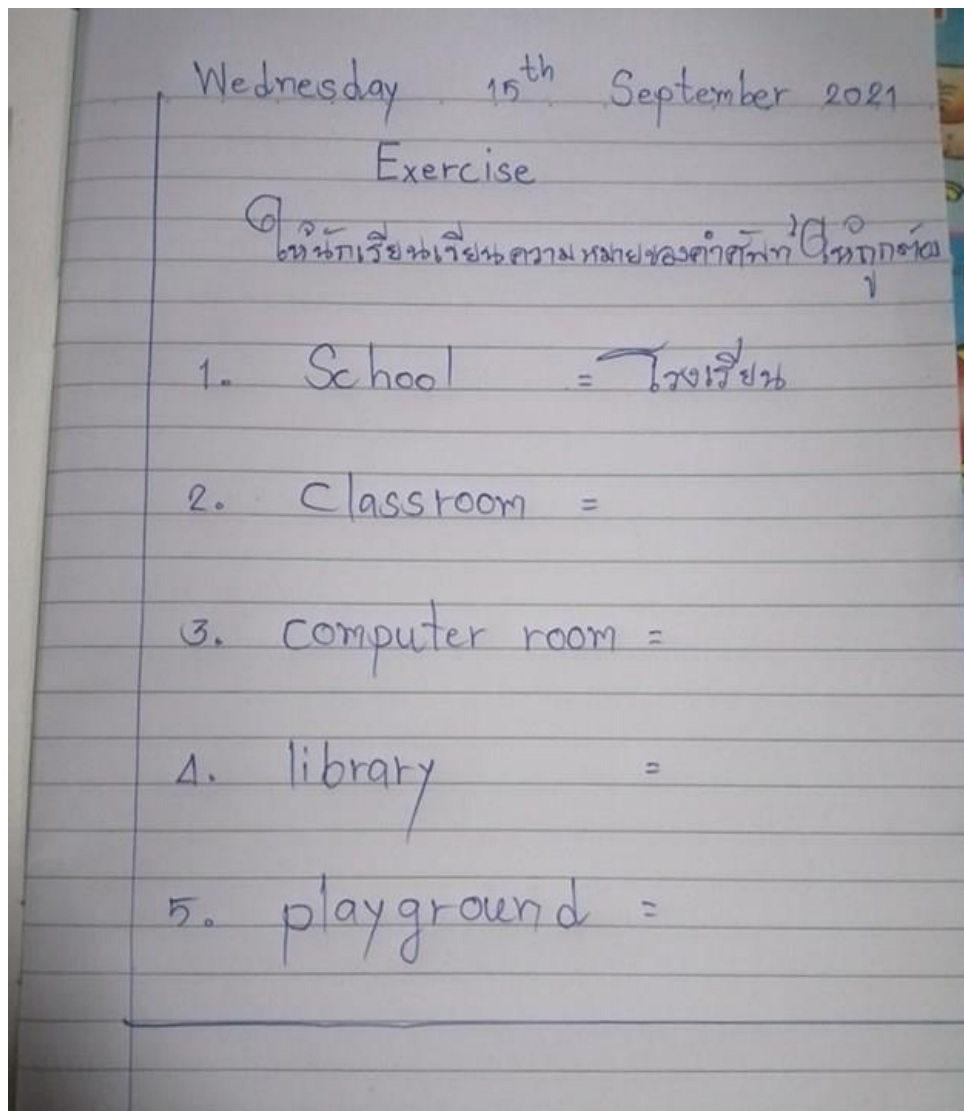 Wednesday 15th September 2021
Exercise
ให้นักเรียนเขียนความหมายของคำศัพท์ให้ถูกต้อง
1. School = โรงเรียน
2. Classroom =
3. computer room =
4. library =
5. playground =